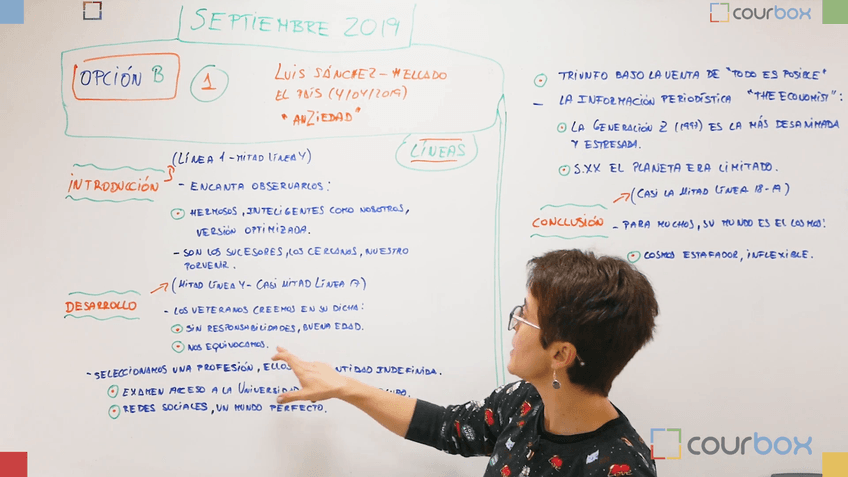 SEPTIEMBRE 2019
courbox
OPCIÓN B
1
LUIS SÁNCHEZ-MELLADO
EL PAÍS (4/04/2019)
"ANZIEDAD"
LÍNEAS
(LÍNEA 1-MITAD LÍNEA 4)
INTRODUCCIÓN
- ENCANTA OBSERVARLOS:
HERMOSOS, INTELIGENTES COMO NOSOTROS,
VERSIÓN OPTIMIZADA.
- SON LOS SUCESORES, LOS CERCANOS, NUESTRO
PORVENIR.
(MITAD LÍNEA 4- CASI MITAD LÍNEA 17)
DESARROLLO
- LOS VETERANOS CREEMOS EN SU DICHA:
SIN RESPONSABILIDADES, BUENA EDAD.
NOS EQUIVOCAMOS.
- SELECCIONAMOS UNA PROFESIÓN, ELLOS ENTIDAD INDEFINIDA.
EXAMEN ACCESO A LA UNIVERSIDAD
REDES SOCIALES, UN MUNDO PERFECTO.
TRIUNFO BAJO LA VENTA DE "TODO ES POSIBLE"
- LA INFORMACIÓN PERIODÍSTICA "THE ECONOMIST":
LA GENERACIÓN Z (1997) ES LA MÁS DESANIMADA
Y ESTRESADA.
S.XX EL PLANETA ERA LIMITADO.
(CASI LA MITAD LÍNEA 18-19)
CONCLUSIÓN
- PARA MUCHOS, SU MUNDO ES EL COSMOS:
COSMOS ESTAFADOR, INFLEXIBLE.
courbox